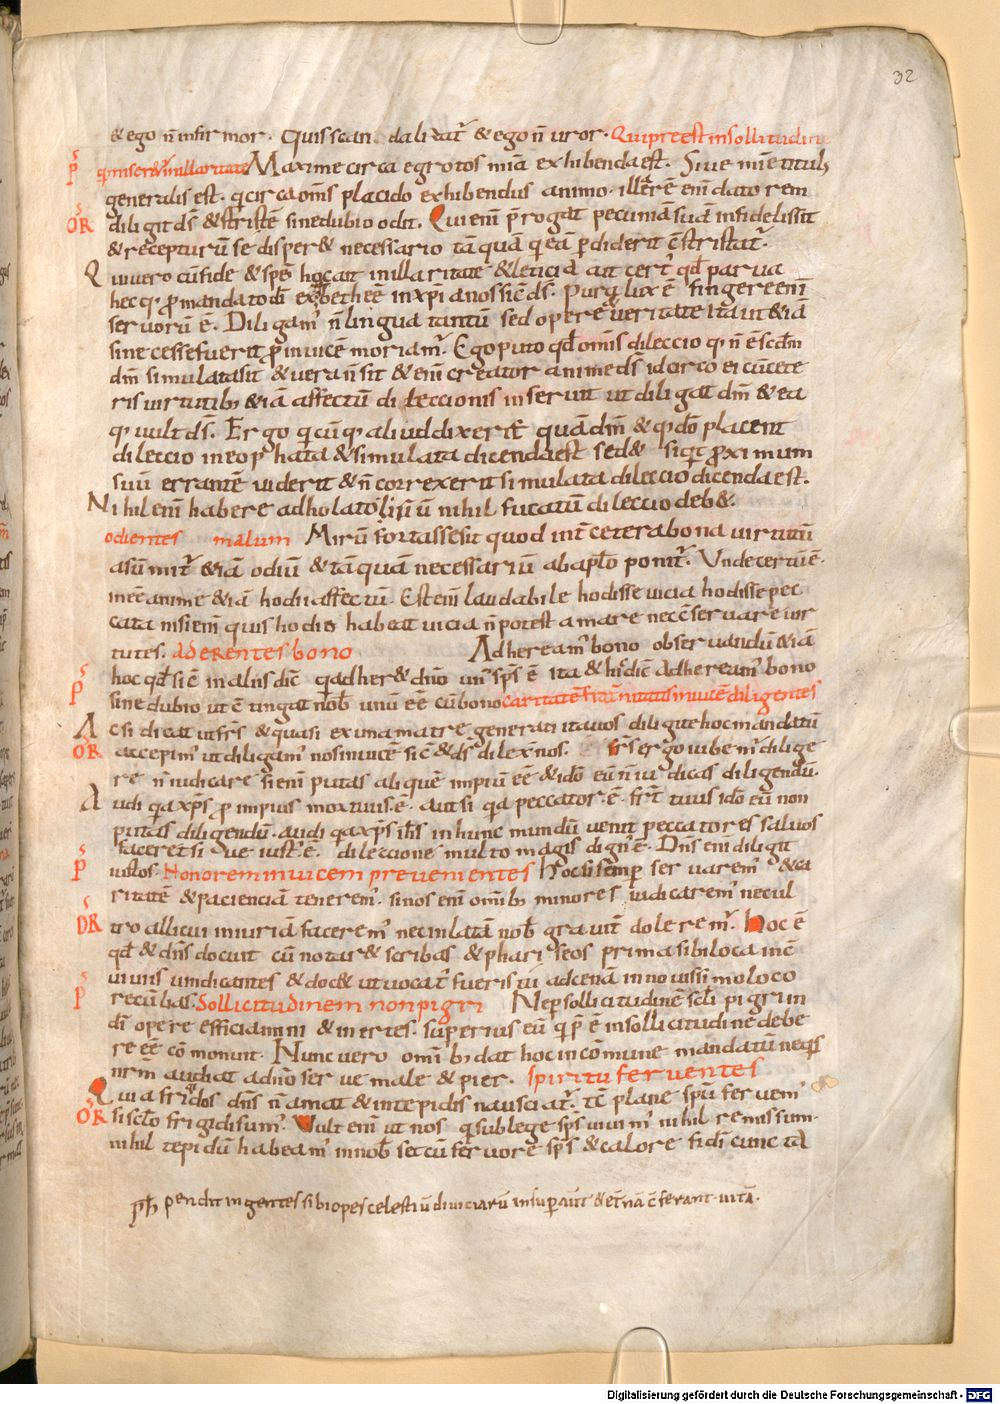 32
& ego n̄ infirmor. Quis scandalizat᷑ & ego n̄ uror. Qui preest in sollitudine
qui miseret᷑ in illaritate Maxime circa egrotos mīa exhibenda est. Siue mīe titulus
generalis est. q̄ circa om̄s placido exhibendus animo. illarē enī datorem
diligit d̄s & tristē sine dubio odit. Qui enī p̄rogat pecuniā suā infidelis sit
& recepturū se disper& necessario tāquā q̄ eā perdiderit c̄tristat᷑.
Qui uero cū fide & spē hoc facit in illaritate & leticia aut cert᷑ qd̄ parua
hec q; p̄ mandato dī exhibet heē in xp̄iano sic ē d̄s. Purū lux ē fingere enī
seruorū ē. Diligam᷑ n̄ lingua tantū sed opere & ueritate ita ut & iā
sinecesse fuerit p̄ inuicē moriam᷑. Ego puto qd̄ omīs dileccio q; n̄ ē scd̄m
dm̄ simulata sit & uera n̄ sit & enī creator anime d̄s idcirco ei cū cete
ris uirtutib; & iā affectū dileccionis inseruit ut diligat dm̄ & ea
q; uult d̄s. Ergo q̄cūq; aliud dixerit quā dm̄ & q; dō placent
dileccio in eo p̄hata & simulata dicenda est sed & siqt proximum
suū errantē uiderit & n̄ correxerit simulata dileccio dicenda est.
Nihil enī habere adholatōrisū nihil fucatum dileccio deb&.
odientes malum Mirū fortasse sit quod int᷑ cetera bona uirtutū
asūmit᷑ & iā odiū & tāquā necessariū ab ap̄lo ponit᷑. Unde certū ē
inēē anime & iā hodii affectū. Est enī laudabile hodisse uicia hodisse pec
cata nisi enī quis hodio habeat uicia n̄ potest amare nec c̄seruare uir
tutes. aderentes bono Adheream᷑ bono obseruandū & iā
hoc qd̄ sic ē in aliis dic̄ q̄ adher& dn̄o un᷑ sp̄s ē ita & hic dic̄ Adheream᷑ bono
sine dubio ut c̄tingat nob̄ unū ēē cū bono caritatē frat᷑nitatis inuicē diligentes
Ac si dicat ut frs̄ & quasi ex una matre generati ita uos diligite hoc mandatū
accepim᷑ ut diligam᷑ nos inuicē sic & d̄s dilex nos. frs̄ ergo iubem᷑ dilige
re n̄ iudicare si enī putas aliquē impiū ēē & idō eū n̄ iudicas diligendū.
Audi q̄a xp̄s p̄ impiis mortuus ē. aut si q̄a peccator ē frat᷑ tuus idō eū non
putas diligendū. audi q̄a xp̄s ih̄s in hunc mundū uenit peccatores saluos
facere & si que iust᷑ ē. dileccione multo magis dign᷑ ē. Dn̄s enī diligit
iustos. Honorem inuicem preuenientes Hoc si semp̄ seruarem᷑ & ca
ritatē & pacienciā tenerem᷑. si nos enī omīb; minores iudicarem᷑ nec ul
tro allicui iniuriā facerem᷑ nec inlatā nob̄ grauit᷑ dolerem᷑. Hoc ē
qd̄ & dn̄s docuit cū notar& scribas & phariseos prima sibi loca in c̄
uiuiis uindicantes & doc& ut uocat᷑ fueris ui ad cenā in nouissimo loco
recūbas. Sollicitudinem non pigri Ne p̄ sollicitudinē scl̄i pigri in
dī opere efficiamini & inertes. superius eū q̄ p̄ ē in sollicitudine debe
re ēē cōmonuit. Nunc uero omīb; dat hoc in cōmune mandatū ne q̄s
urm̄ audiat a dn̄o serue male & piger. spiritu feruentes
Quia frigidos dn̄s n̄ amat & in tepidis nausciat᷑. Tc̄ plane sp̄u feruem᷑
si sclō frigidi sum᷑. Uult enī ut nos q̄ sub lege sp̄s uiuim᷑ nihil remissum.
nihil tepidū habeam᷑ in nob̄ set cū feruore sp̄s & calore fidi cuncta
pendit ingentes sibi opes celestiū diuiciarū insup̄ aūt & et᷑nā c̄ferant uitā.
Digitalisierung gefördert durch die Deutsche Forschungsgemeinschaft - DFG